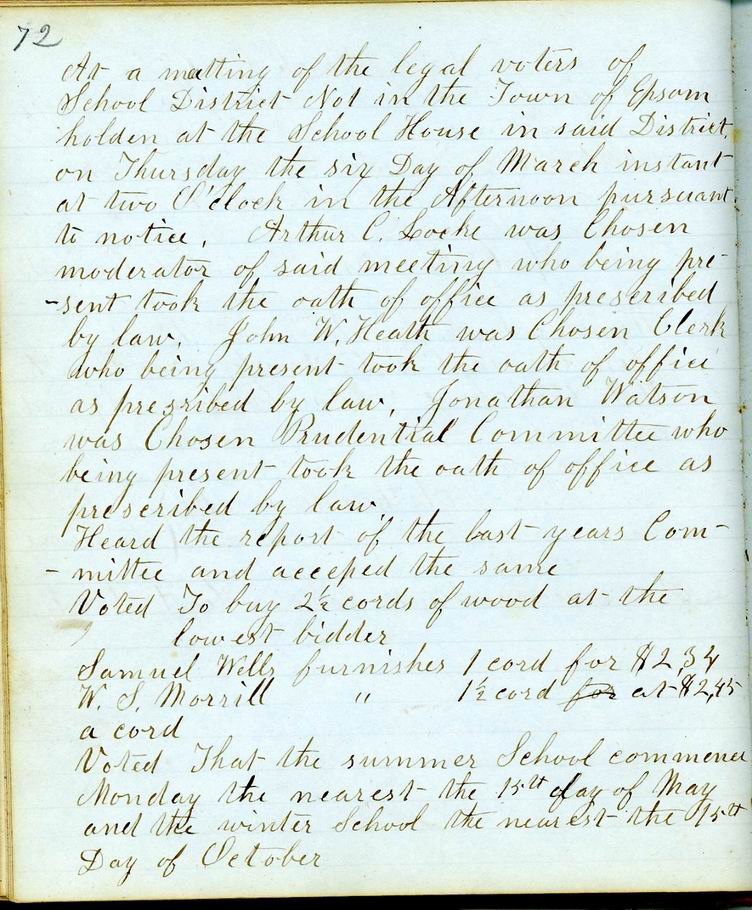 72
At a meatting of the legal voters of
School District Not in the Town of Epsom
holden at the School House in said District,
on Thursday the six Day of March instant
at two O'clock in the Afternoon pursuant
to notice. Arthur C. Locke was Chosen
moderator of said meeting who being pre-
-sent took the oath of office as prescribed
by law. John W. Heath was Chosen Clerk
who being present took the oath of office
as presribed by law, Jonathan Watson
was Chosen Prudential Committee who
being present took the oath of office as
prescribed by law.
Heard the report of the last years Com-
-mittee and acceped the same
Voted To buy 2½ cords of wood at the
lowest bidder
Samuel Wells furnishes 1 cord for $2,34
W. S. Morrill " 1½ cord for at $2,45
a cord
Voted That the summer School commence
Monday the nearest the 15th day of May
and the winter School the nearest the 15th
Day of October